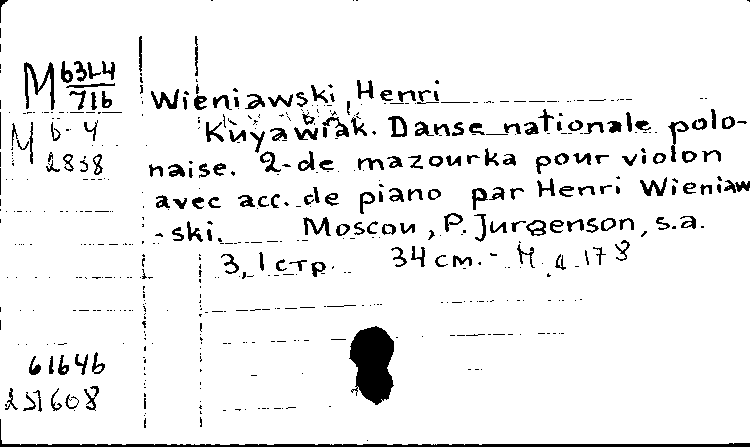 M 63L-4
716
Wieniawski, Henri
M b-4
2838
Kuyawiak. Danse nationale polo-
naise. 2-de mazourka pour violon
avec acc. de piano par Henri Wieniaw
-ski. Moscou, P. Jurgenson, s.a.
3, 1 стр. 34 см.-
61646
251608